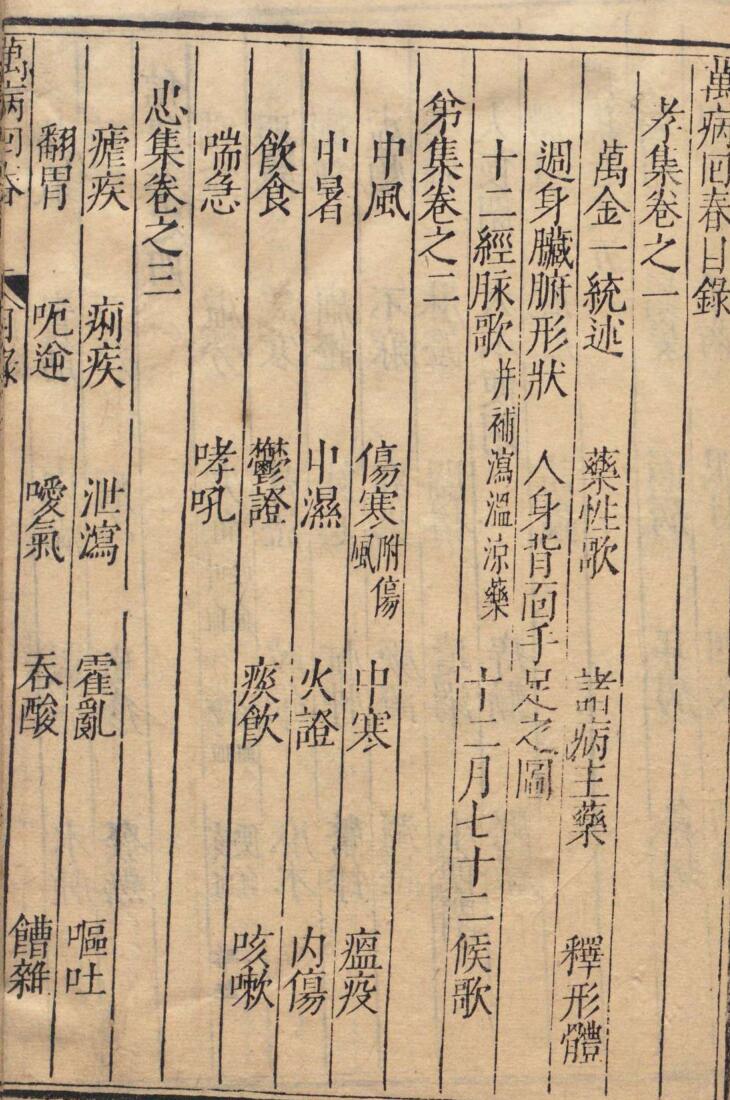 萬病回春目錄
孝集卷之一
萬金一統述 藥性歌 諸病主藥 釋形體
週身臟腑形狀 人身背面手足之圖
十二經脉歌 并補瀉溫涼藥 十二月七十二候歌
弟集卷之二
中風 傷寒 附傷風 中寒 瘟疫
中暑 中濕 火證 內傷
飲食 鬱證 痰飲 咳嗽
喘急 哮吼
忠集卷之三
瘧疾 痢疾 泄瀉 霍亂 嘔吐
翻胃 呃逆 噯氣 吞酸 嘈雜
萬病回春 目錄